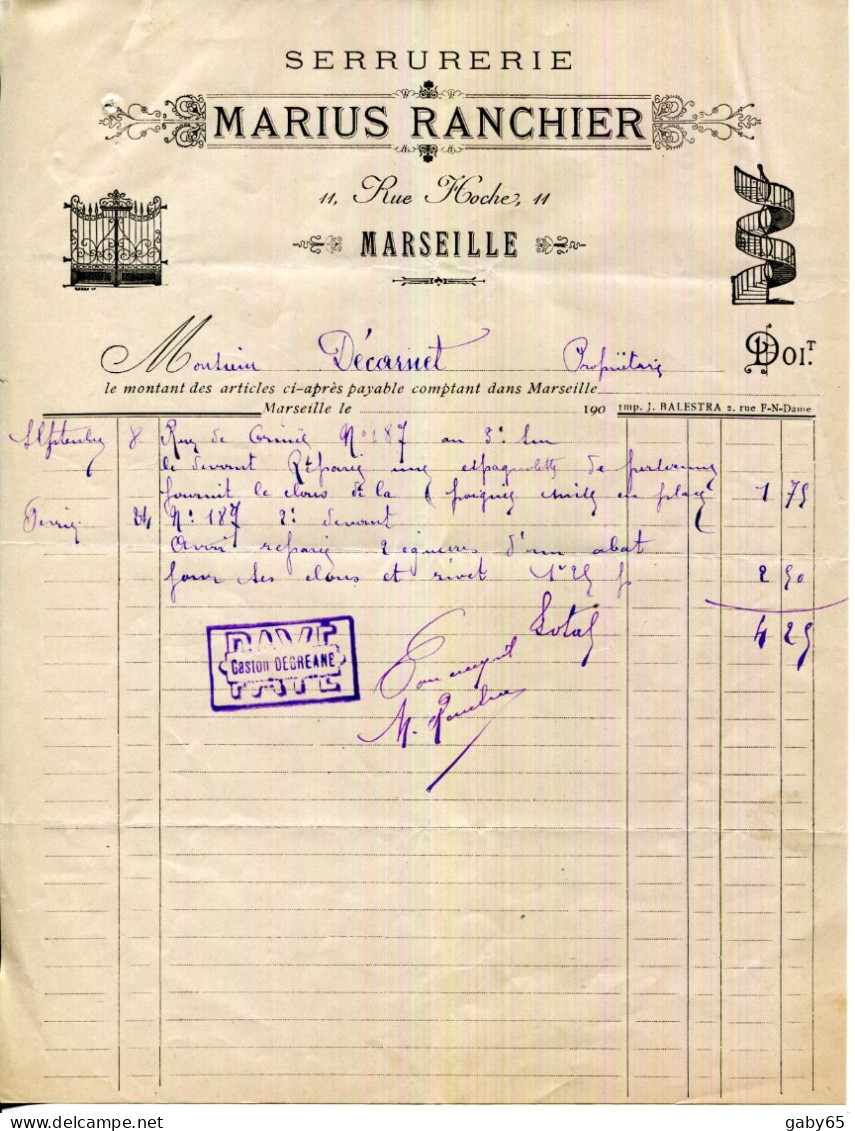 SERRURERIE
MARIUS RANCHIER
11, Rue Hoche, 11
MARSEILLE
Monsieur Décarnet Propriétaire DOIT.
le montant des articles ci-après payable comptant dans Marseille
Marseille le 190 Imp. J. BALESTRA 2, rue F-N-Dame
Septembre 8 Rue de N° 187 au 3e
le devant espagnolette de
fournit le clous de la en place 1 75
24 N° 187 2e devant
Avoir 2 équerres d'un abat
jour ses clous et rivet 1 25 2 50
Total 4 25
PAYÉ
Gaston DECREANE
Pour acquit
M. Ranchier
gaby65